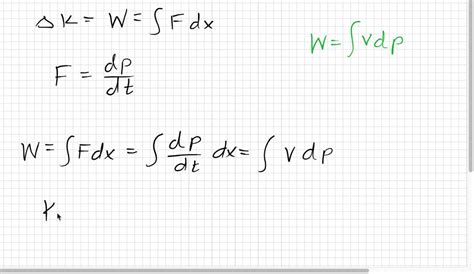 ΔK = W = ∫ F dx
W = ∫ v dp
F = dp/dt
W = ∫ F dx = ∫ dp/dt dx = ∫ v dp
K